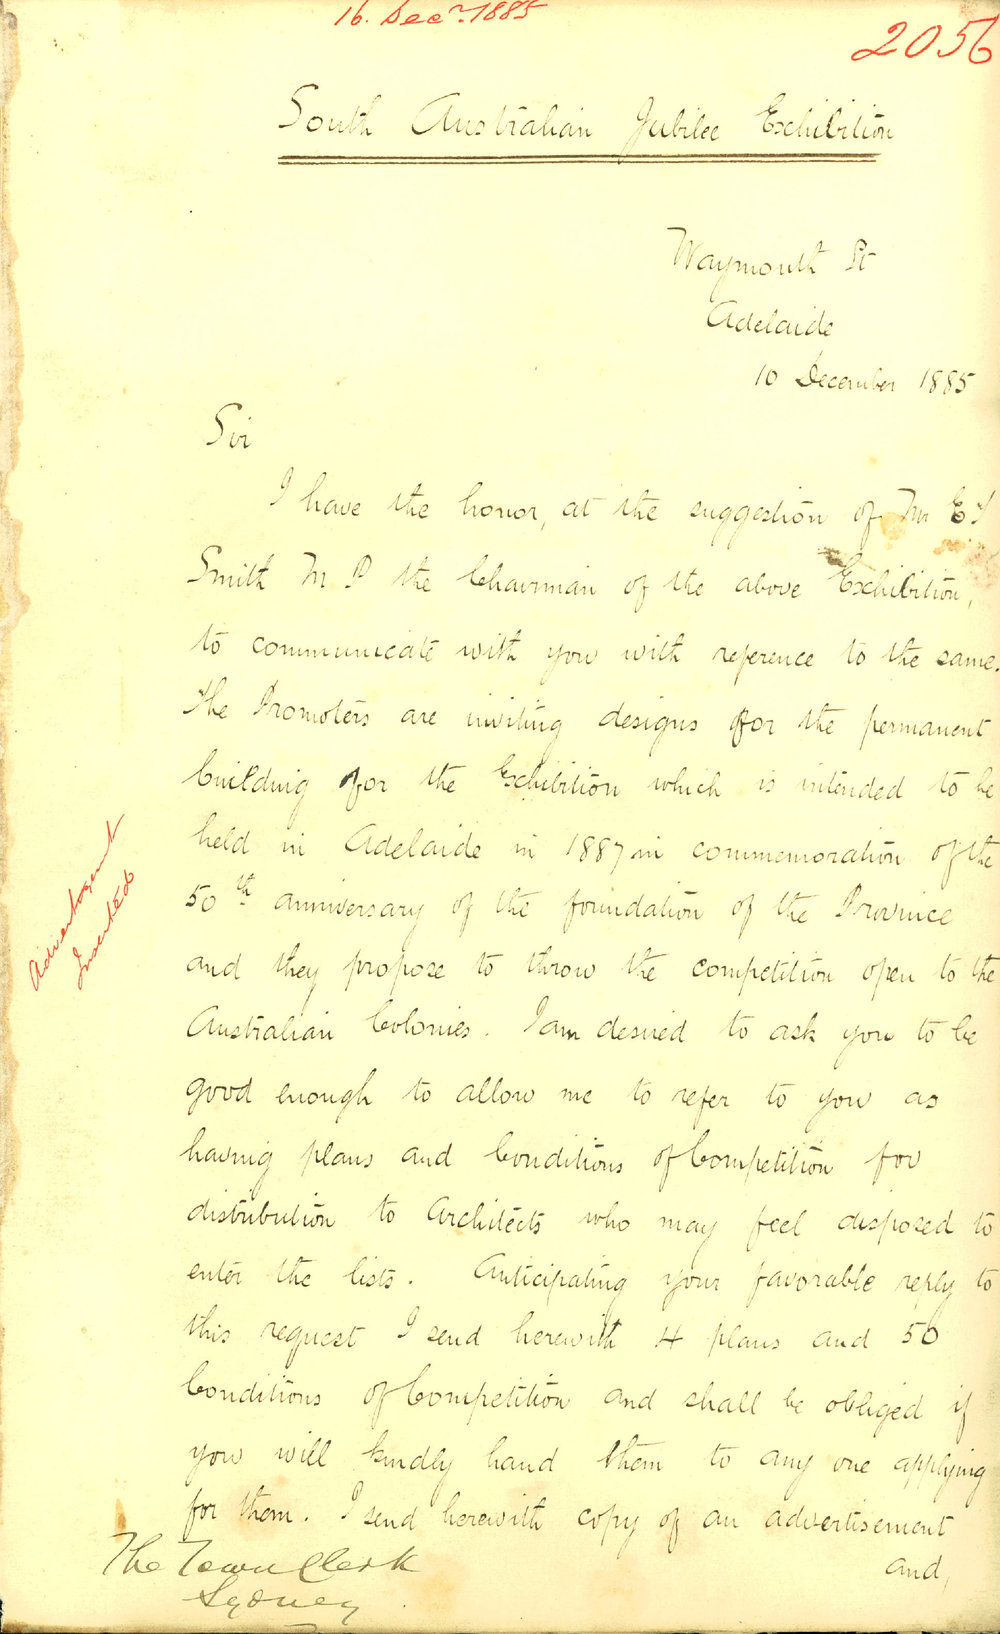 16. Decr. 1885
2056
South Australian Jubilee Exhibition
Waymouth St
Adelaide
10 December 1885
Sir
I have the honor, at the suggestion of Mr E T
Smith M. P the Chairman of the above Exhibition,
to communicate with you with reference to the same.
The Promoters are inviting designs for the permanent
building for the Exhibition which is intended to be
held in Adelaide in 1887 in commemoration of the
50th anniversary of the foundation of the Province
and they propose to throw the competition open to the
Australian Colonies. I am desired to ask you to be
good enough to allow me to refer to you as
having plans and Conditions of Competition for
distribution to Architects who may feel disposed to
enter the lists. Anticipating your favorable reply to
this request I send herewith 4 plans and 50
Conditions of Competition and shall be obliged if
you will kindly hand them to any one applying
for them. I send herewith copy of an advertisement
and,
The Town Clerk
Sydney.
Advertisement
Inserted